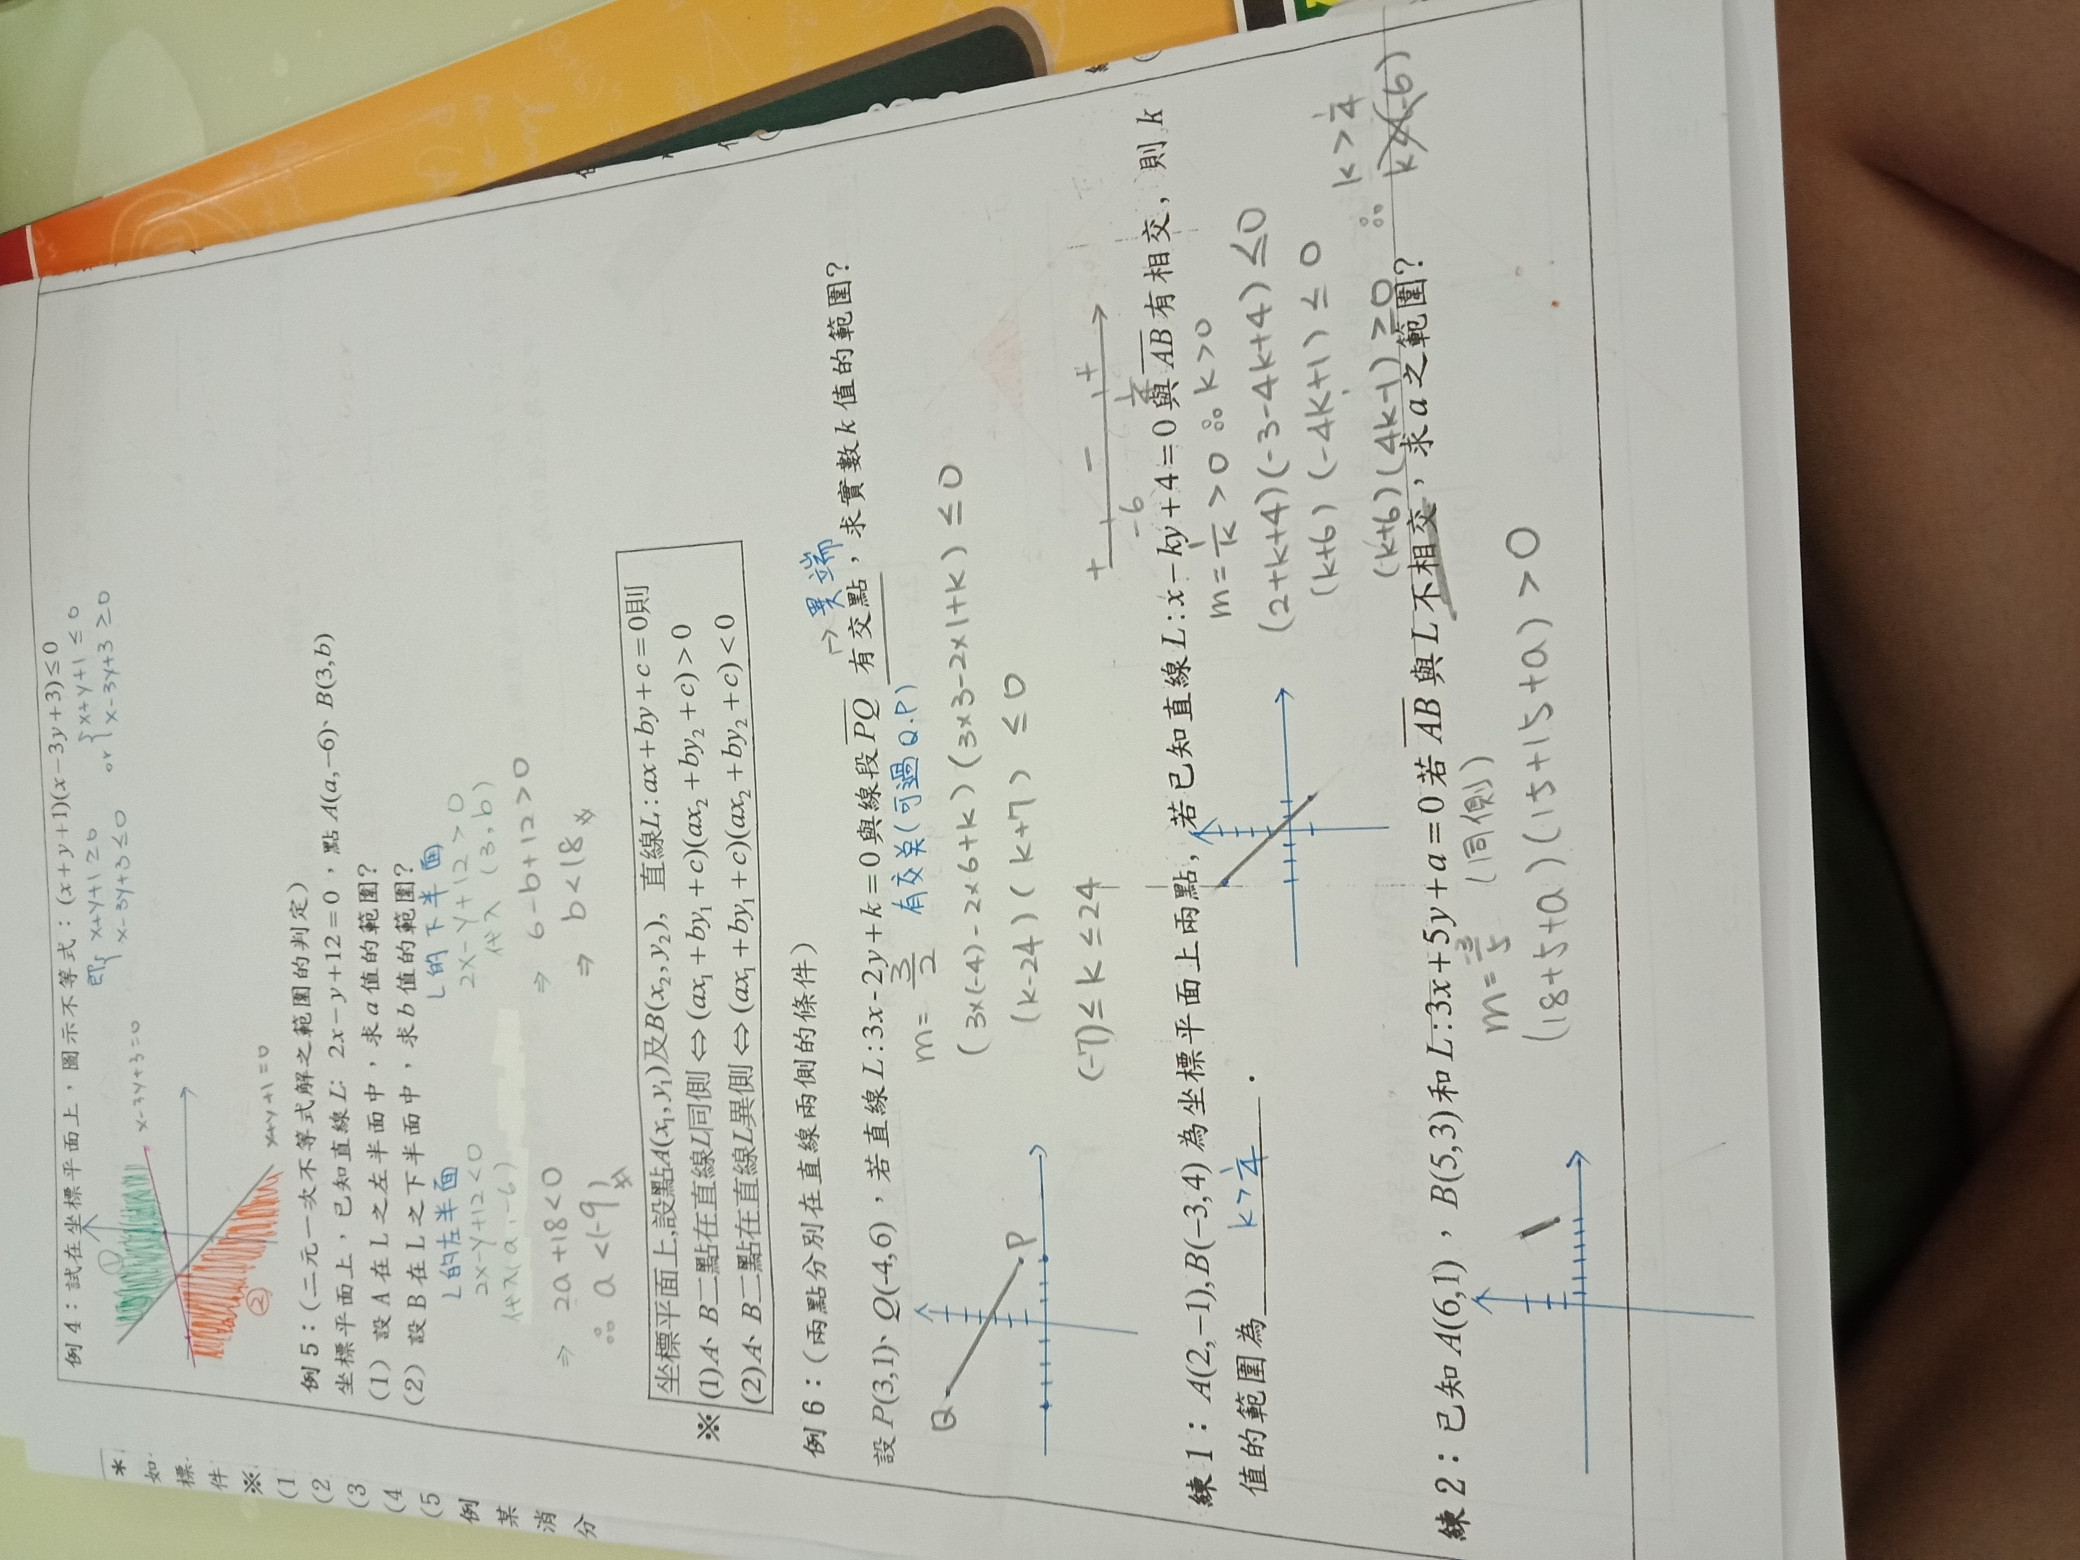 例 4：試在坐標平面上，圖示不等式：(x+y+1)(x−3y+3)≤0
即{ x+y+1≥0
x−3y+3≤0
or { x+y+1≤0
x−3y+3≥0
①
x-3y+3=0
②
x+y+1=0
例 5：(二元一次不等式解之範圍的判定)
坐標平面上，已知直線 L: 2x−y+12=0，點 A(a,−6)、B(3,b)
(1) 設 A 在 L 之左半面中，求 a 值的範圍？
(2) 設 B 在 L 之下半面中，求 b 值的範圍？
L的左半面
2x-y+12<0
代入(a,-6)
⇒ 2a+18<0
∴ a<(-9)
L的下半面
2x-y+12>0
代入(3,b)
⇒ 6-b+12>0
⇒ b<18
坐標平面上,設點A(x₁,y₁)及B(x₂,y₂)，直線L:ax+by+c=0則
※ (1)A、B二點在直線L同側⇔(ax₁+by₁+c)(ax₂+by₂+c)>0
(2)A、B二點在直線L異側⇔(ax₁+by₁+c)(ax₂+by₂+c)<0
例 6：(兩點分別在直線兩側的條件)
→異端
設P(3,1)、Q(-4,6)，若直線L:3x-2y+k=0與線段PQ 有交點，求實數k值的範圍？
m=3/2
有交关(可過Q.P)
Q
P
(3×(-4)-2×6+k)(3×3-2×1+k)≤0
(k-24)(k+7)≤0
(-7)≤k≤24
+ − +
-6 1/4
練 1：A(2,−1),B(−3,4)為坐標平面上兩點,若已知直線L:x−ky+4=0與AB有相交，則k
值的範圍為 k>1/4 .
m=1/k>0 ∴k>0
(2+k+4)(-3-4k+4)≤0
(k+6)(-4k+1)≤0
(k+6)(4k-1)≥0
∴ k>1/4
k<(-6)
練 2：已知A(6,1)，B(5,3)和L:3x+5y+a=0若AB與L不相交，求a之範圍？
m=-3/5 (同側)
(18+5+a)(15+15+a)>0
*
如
標
件
※
(1
(2
(3
(4
(5
例
某
消
分